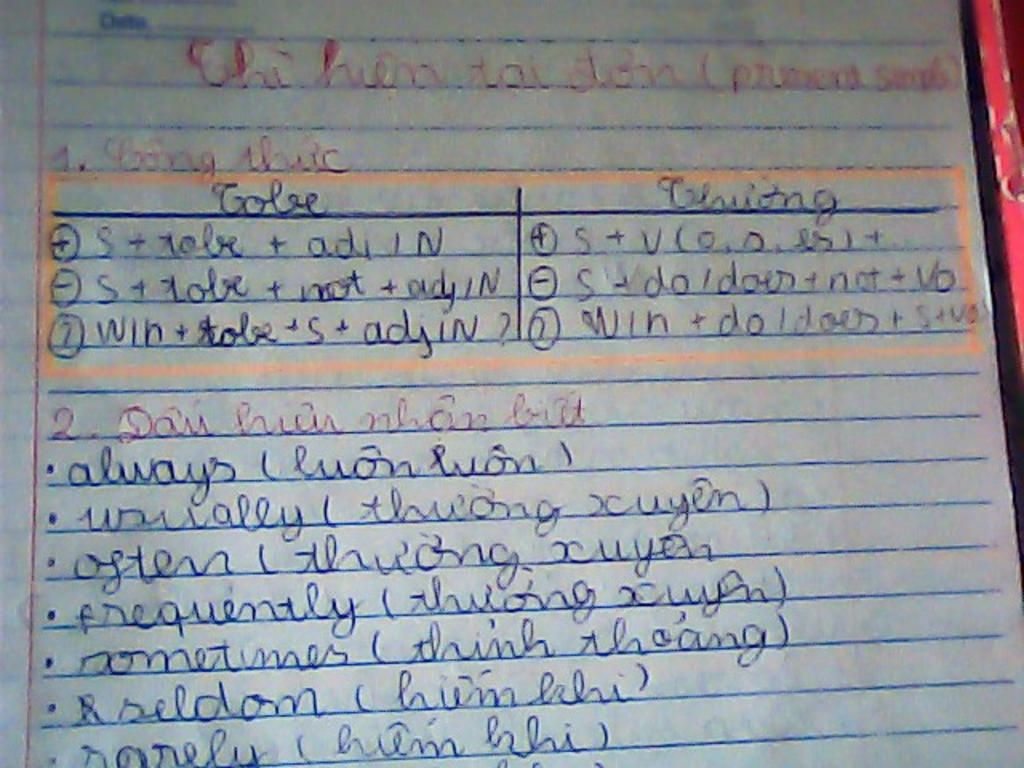 Date
Thì hiện tại đơn (present simple)
1. Công thức
Tobe Thường
+ S + tobe + adj/N + S + V(o, s, es) + ..
- S + tobe + not + adj/N - S + do/does + not + Vo
? W/h + tobe + S + adj/N ? ? W/h + do/does + S + Vo
2. Dấu hiệu nhận biết
• always (luôn luôn)
• usually (thường xuyên)
• often (thường xuyên
• frequently (thường xuyên)
• sometimes (thỉnh thoảng)
• seldom (hiếm khi)
• rarely (hiếm khi)